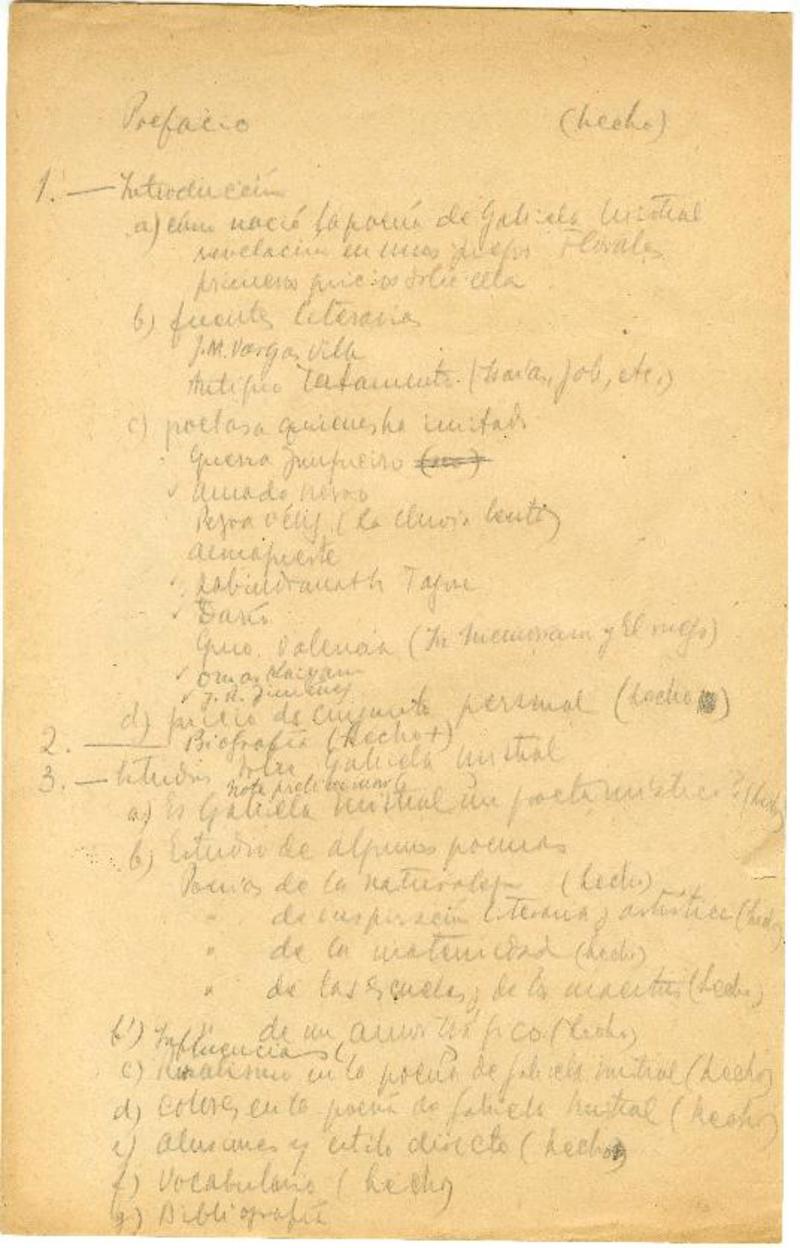 Prefacio (hecho)
1. — Introducción
a) cómo nació la poesía de Gabiela Mistral
revelación en unos juegos Florales
primeros juicios sobre ella
b) fuentes literarias
J.M. Vargas Vila
Antiguo Testamento (Isaías, Job, etc.)
c) poetas a quienes ha imitado
Guerra Junqueiro
Amado Nervo
Pezoa Véliz (La lluvia lenta)
Almafuerte
Rabindranath Tagore
Darío
Gmo. Valencia (In Memoriam y El
Omar Kaiyam
J. R. Jiménez
d) juicio de conjunto personal (hecho)
2. — Biografía (Hecho+)
3. — Estudios sobre Gabriela Mistral
Nota preliminar
a) Es Gabriela Mistral un poeta místico? (hecho)
b) Estudio de algunos poemas
Poesías de la naturaleza (hecho)
" de inspiración literaria y artística (hecho)
" de la maternidad (hecho)
" de las escuelas y de los maestros (hecho)
" de un amor trágico (hecho)
b') Influencias
c) Realismo en la poesía de Gabriela Mistral (hecho)
d) Colores en la poesía de Gabriela Mistral (hecho)
e) Alusiones y estilo directo (hecho)
f) Vocabulario (hecho)
g) Bibliografía